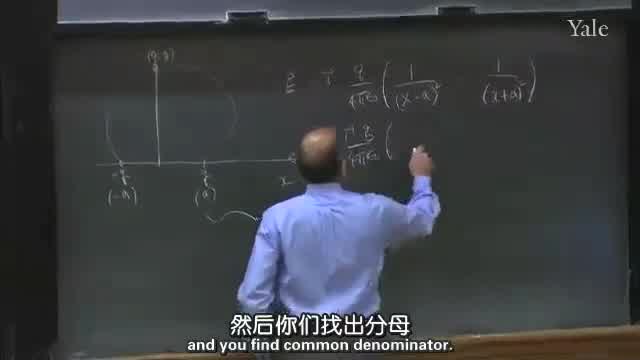 Yale
(0,y)
E = i q/4πε₀ ( 1/(x-a)² - 1/(x+a)² )
i q/4πε₀ (
-q q x
(-a) (a)
然后你们找出分母
and you find common denominator.